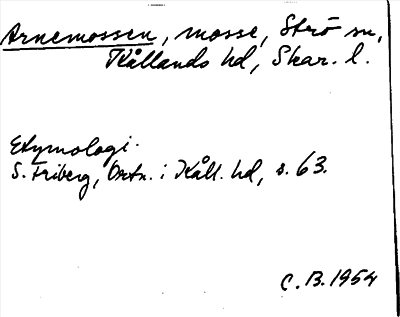 Arnemossen, mosse, Strö sn,
Kållands hd, Skar. l.
Etymologi.
S. Friberg, Ortn. i Kåll. hd, s. 63.
C. B. 1954